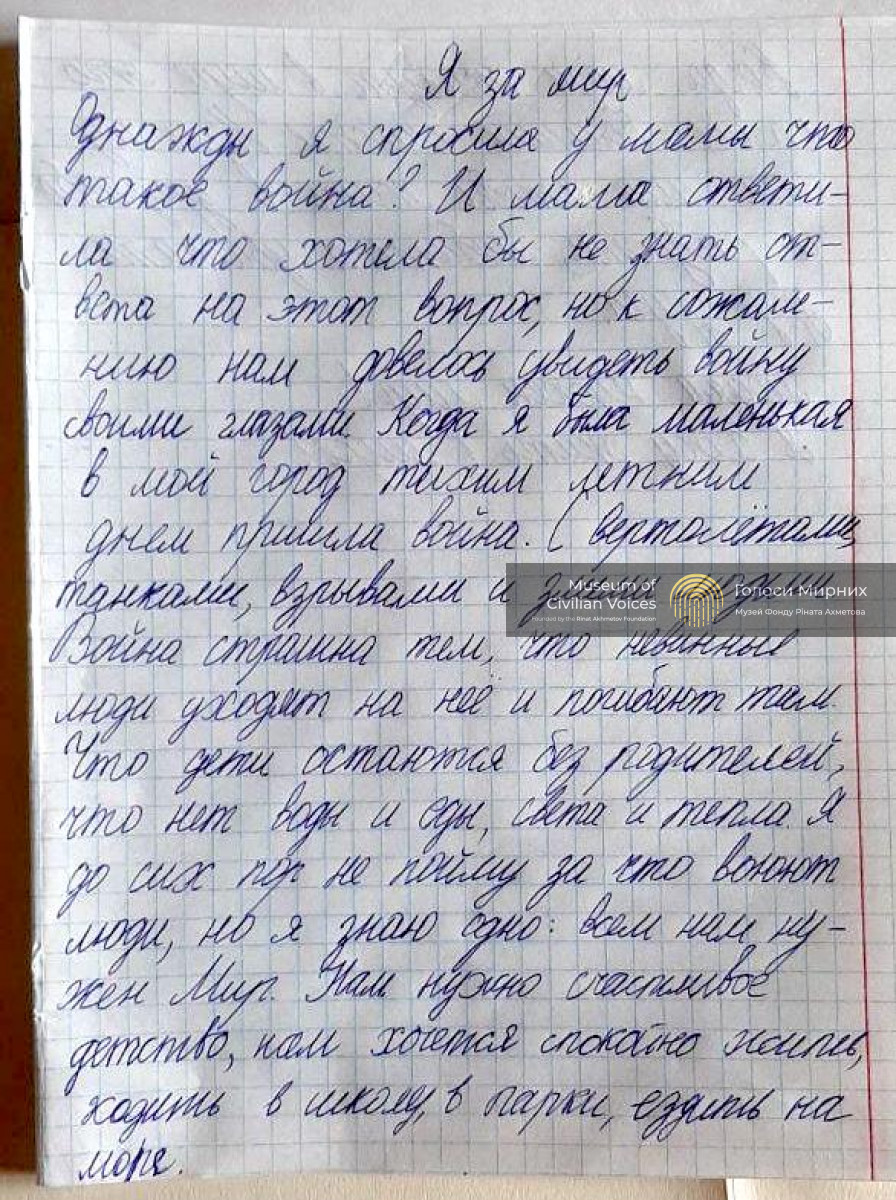 Я за мир
Однажды я спросила у мамы что
такое война? И мама ответи-
ла что хотела бы не знать от-
вета на этот вопрос, но к сожале-
нию нам довелось увидеть войну
своими глазами. Когда я была маленькая
в мой город тихим летним
днем пришла война. С вертолётами,
танками, взрывами и злыми людьми
Museum of
Civilian Voices
Founded by the Rinat Akhmetov Foundation
Голоси Мирних
Музей Фонду Ріната Ахметова
Война страшна тем, что невинные
люди уходят на неё и погибают там.
Что дети остаются без родителей,
что нет воды и еды, света и тепла. Я
до сих пор не пойму за что воюют
люди, но я знаю одно: всем нам ну-
жен Мир. Нам нужно счастливое
детство, нам хочется спокойно жить,
ходить в школу, в парки, ездить на
море.